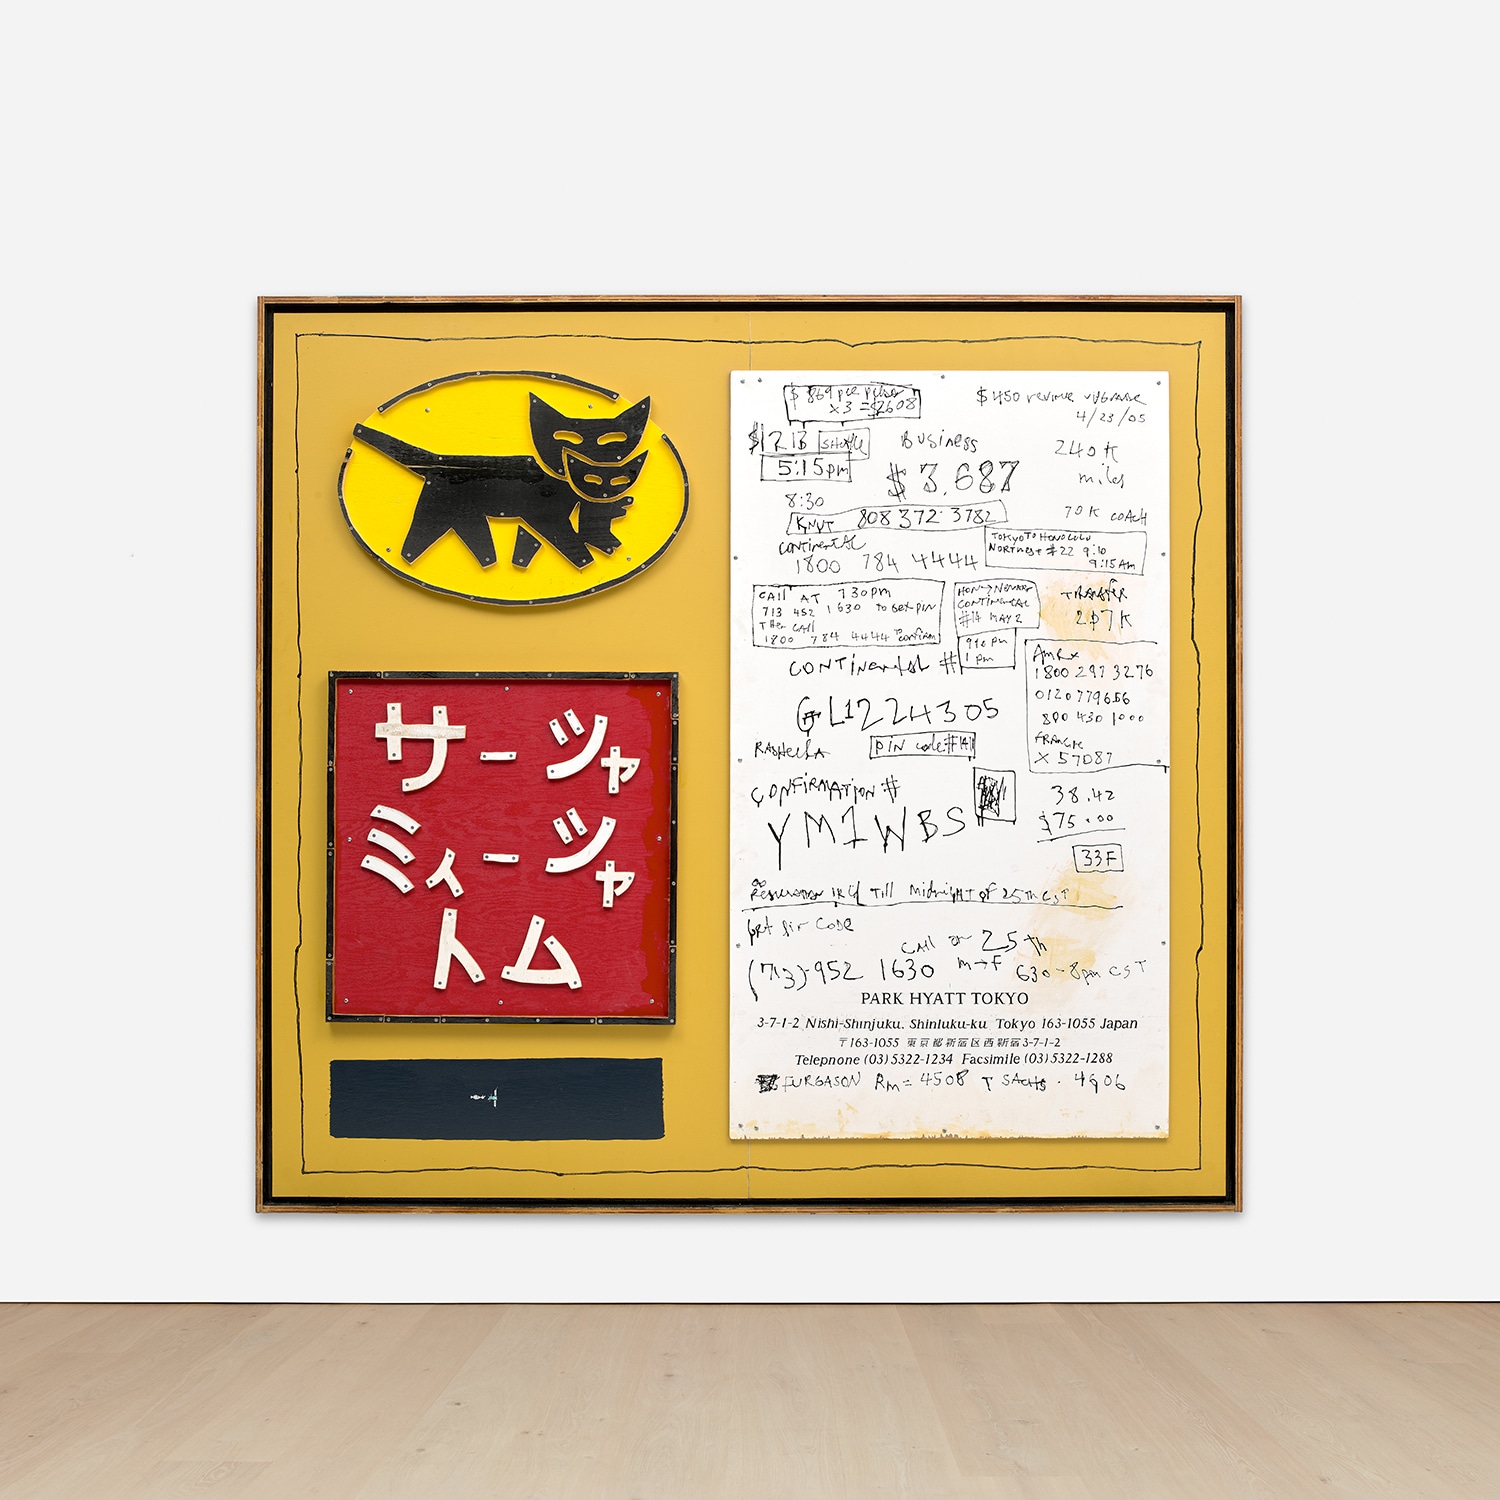 サーシャ
ミィーシャ
トム
$ 869 per person
x 3 = $2608
$450 revenue upgrade
4/23/05
$1213 SHUTTLE
BUSINESS
240K
miles
5:15pm
$3,687
8:30
70K COACH
KNUT 808 372·3782
CONTINENTAL
1800 784 4444
TOKYO TO HONOLULU
NORTHWEST #22 9:10
9:15AM
CALL AT 730pm
713 952 1630 To Get pin
THEN CALL
1800 784 4444 To confirm
HON→NEWARK
CONTINENTAL
#14 MAY 2
TRANSFER
207K
1pm
CONTINENTAL #
GL1224305
AmEx
1800 297 3276
0120779656
800 430 1000
FRANCK
X 57087
PIN code#
CONFIRMATION #
YM1WBS
38.42
$75.00
33F
Reservation Till Midnight of 25th CST
Get pin CODE
CALL on 25th
(713)-952 1630 M→F 630-8pm CST
PARK HYATT TOKYO
3-7-1-2 Nishi-Shinjuku. Shinluku-ku Tokyo 163-1055 Japan
〒163-1055 東京都新宿区西新宿3-7-1-2
Telepnone (03) 5322-1234 Facsimile (03) 5322-1288
FURGASON Rm = 4508 T SACHS · 4906